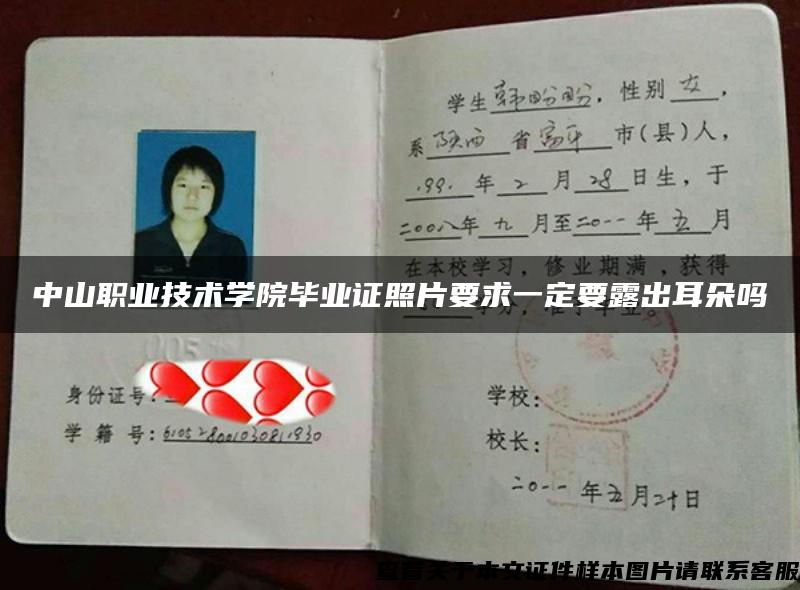 学生韩盼盼，性别女，
系陕西省富平市(县)人，
1991年2月28日生，于
二00八年九月至二0一一年五月
在本校学习，修业期满，获得
中山职业技术学院毕业证照片要求一定要露出耳朵吗
学分，准予毕业。
身份证号：
学籍号：
学校：
校长：
二0一一年五月二十日
查看关于本文证件样本图片请联系客服